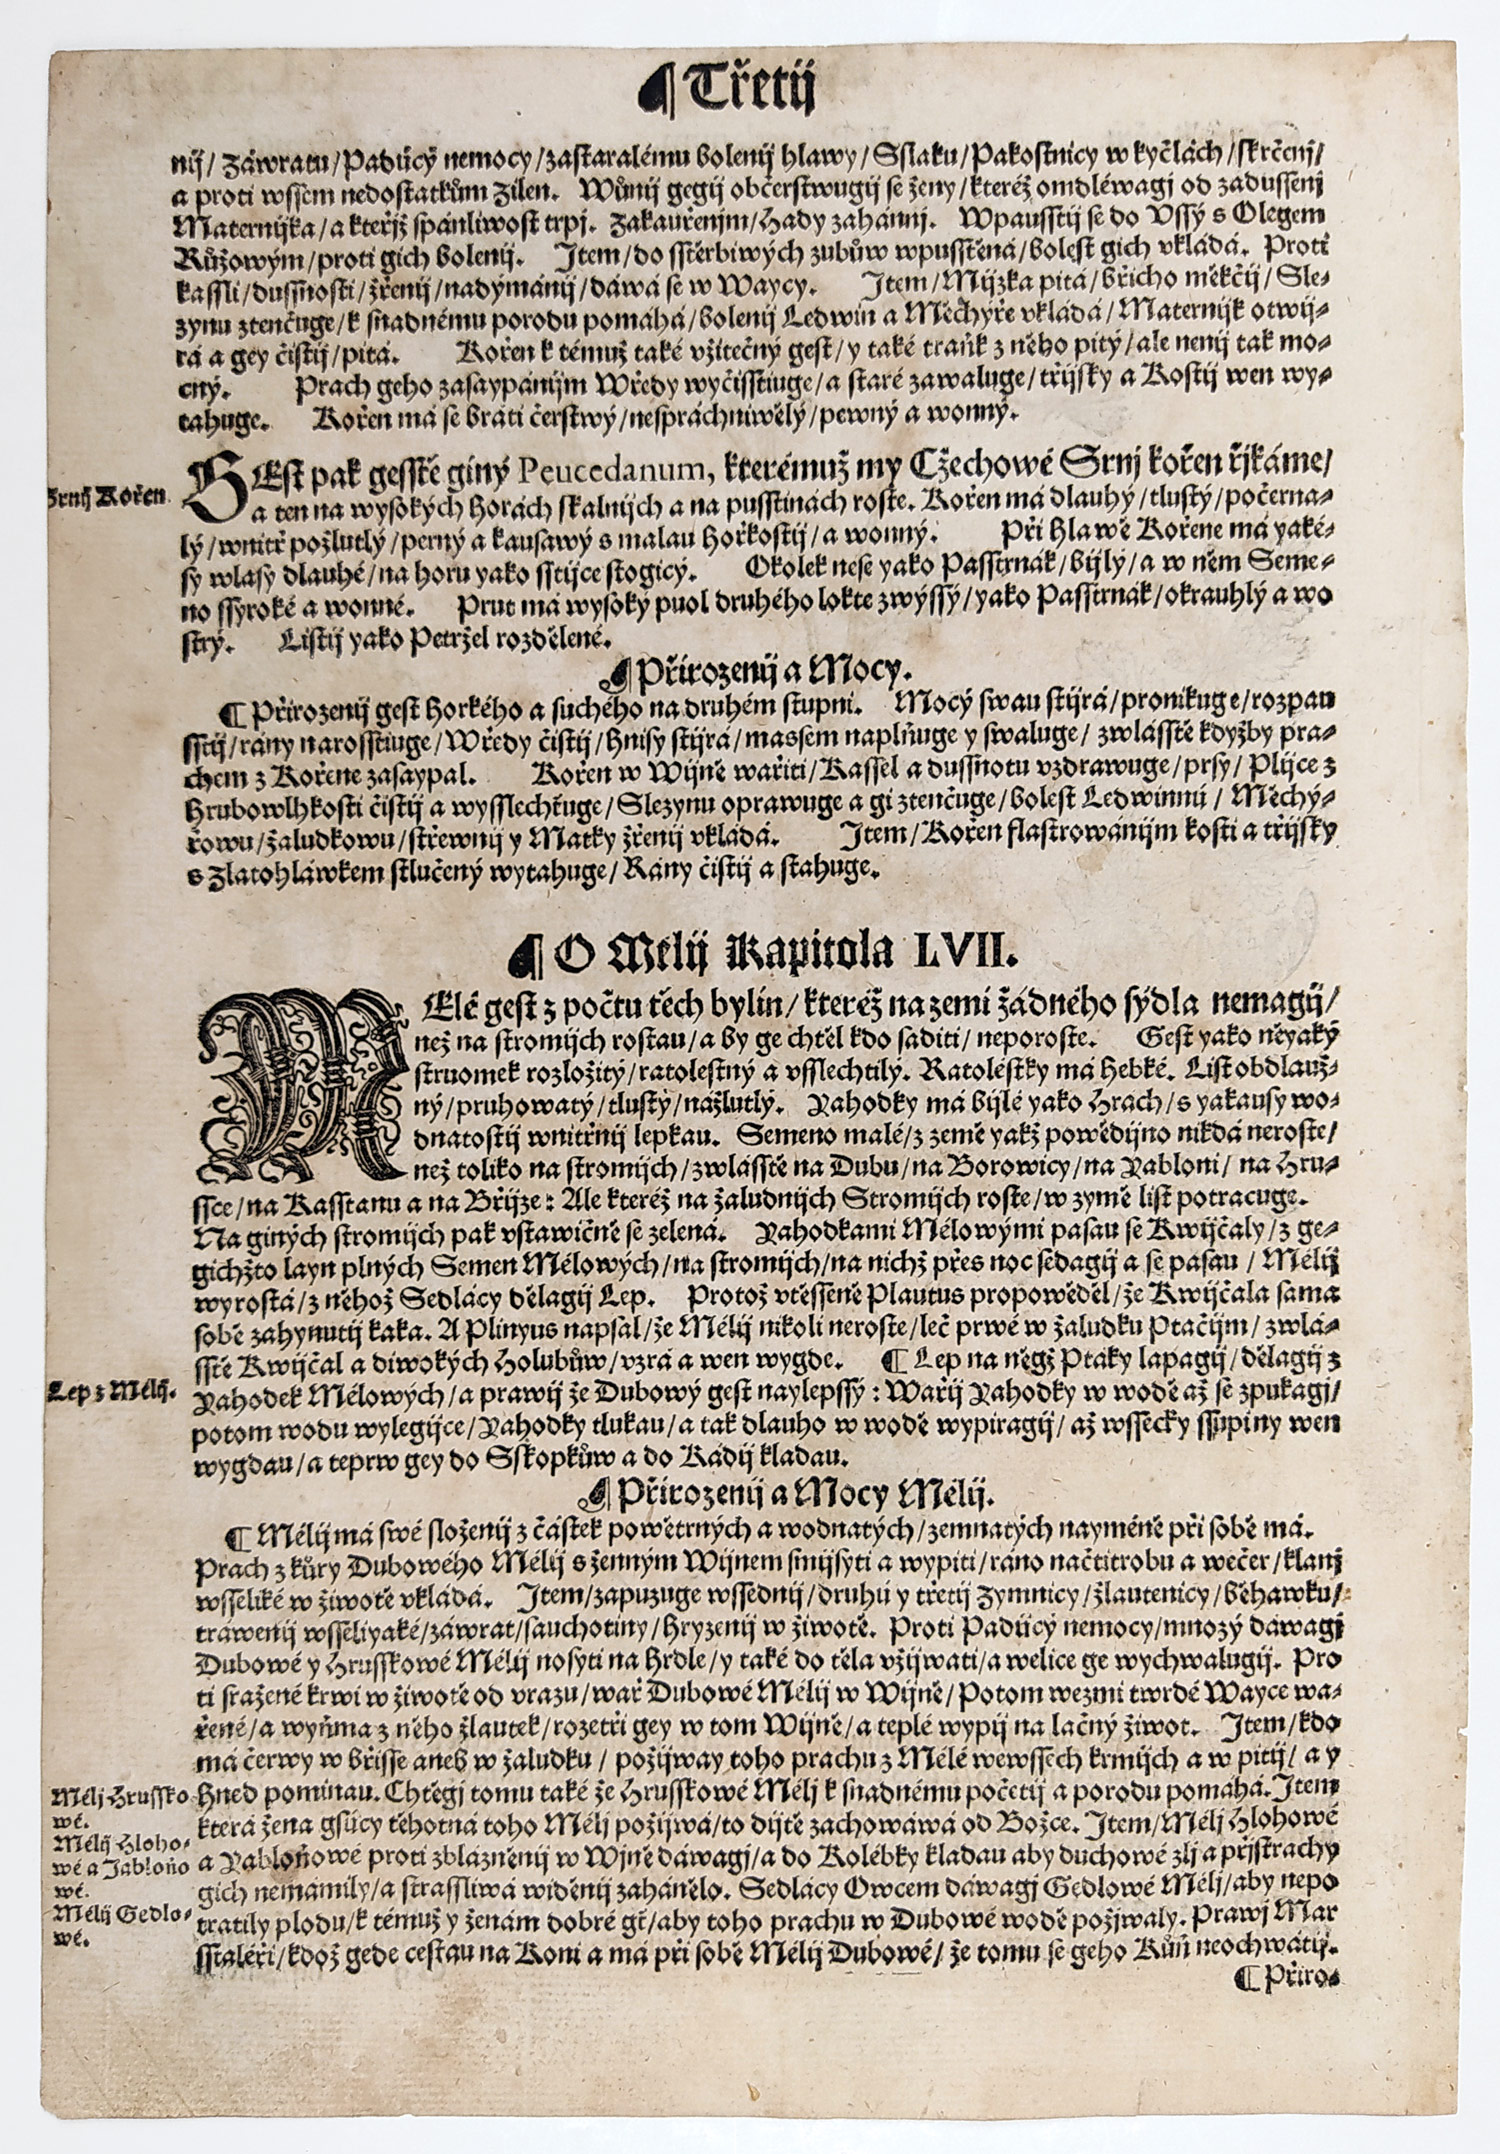 ¶ Třetij
nij/ Záwratu/Padúcý nemocy/zastaralému bolenij hlawy/Sslaku/Pakostnicy w kyčlách/skrčenj/
a proti wssem nedostatkům Žilen. Wůnij gegij občerstwugij se ženy/kteréž omdléwagj od zadussenj
Maternijka/a kteřijž spánliwost trpj. Zakauřenjm/Hady zahánnj. Wpausstij se do Vssý s Olegem
Růžowým/proti gich bolenij. Item/do sstěrbiwých zubůw wpusstěná/bolest gich vkládá. Proti
kassli/dussnosti/žřenij/nadýmánij/dáwá se w Waycy. Item/Mijzka pitá/břicho měkčij/Sle-
zynu ztenčuge/k snadnému porodu pomáhá/bolenij Ledwin a Měchýře vkládá/Maternijk otwij-
rá a gey čistij/pitá. Kořen k témuž také vžitečný gest/y také traňk z něho pitý/ale nenij tak mo-
cný. Prach geho zasaypánijm Wředy wyčisstiuge/a staré zawaluge/třijsky a Kostij wen wy-
tahuge. Kořen má se bráti čerstwý/nespráchniwělý/pewný a wonný.
Srnij Kořen
GEst pak gesstě giný Peucedanum, kterémuž my Cžechowé Srnj kořen řjkáme/
a ten na wysokých Horách skalnijch a na pusstinách roste. Kořen má dlauhý/tlustý/počerna-
lý/wnitř požlutlý/perný a kausawý s malau Hořkostij/a wonný. Při Hlawě Kořene má yaké-
sy wlasy dlauhé/na horu yako sstijce stogicý. Okolek nese yako Passtrnák/bijlý/a w něm Seme-
no ssyroké a wonné. Prut má wysoký puol druhého lokte zwýssý/yako Passtrnák/okrauhlý a wo
strý. Listij yako Petržel rozdělené.
¶ Přirozenij a Mocy.
¶ Přirozenij gest Horkého a suchého na druhém stupni. Mocý swau stijrá/pronikuge/rozpau
sstij/rány narosstiuge/Wředy čistij/Hnisy stijrá/massem naplňuge y swaluge/ zwlásstě kdyžby pra-
chem z Kořene zasaypal. Kořen w Wijně wařiti/Kassel a dussnotu vzdrawuge/prsy/ Plijce z
Hrubowlhkosti čistij a wysslechtuge/Slezynu oprawuge a gi ztenčuge/bolest Ledwinnú/ Měchý-
řowu/žaludkowu/střewnij y Matky žřenij vkládá. Item/Kořen flastrowánijm kosti a třijsky
s Zlatohlawkem stlučený wytahuge/Rány čistij a stahuge.
¶ O Melij Kapitola LVII.
MElé gest z počtu těch bylin/kteréž na zemi žádného sýdla nemagij/
než na stromijch rostau/a by ge chtěl kdo saditi/neporoste. Gest yako něyaký
struomek rozložitý/ratolestný a vsslechtilý. Ratoléstky má Hebké. List obdlauž-
ný/pruhowatý/tlustý/nážlutlý. Yahodky má bijlé yako Hrach/s yakausy wo-
dnatostij wnitřnij lepkau. Semeno malé/z země yakž powědijno nikdá neroste/
než toliko na stromijch/zwlásstě na Dubu/na Borowicy/na Yabloni/ na Hru-
ssce/na Kasstanu a na Břijze: Ale kteréž na žaludnijch Stromijch roste/w zymě list potracuge.
Na giných stromijch pak vstawičně se zelená. Yahodkami Mélowými pasau se Kwijčaly/z ge-
gichžto layn plných Semen Mélowých/na stromijch/na nichž přes noc sedagij a se pasau/ Mélij
wyrostá/z něhož Sedlácy dělagij Lep. Protož vtěssené Plautus propowěděl/že Kwijčala sama
sobě zahynutij kaká. A Plinyus napsal/že Mélij nikoli neroste/leč prwé w žaludku Ptačijm/zwlá-
sstě Kwijčal a diwokých Holubůw/vzrá a wen wygde. ¶ Lep na něgž Ptáky lapagij/dělagij z
Lep z Mélij.
Yahodek Mélowých/a prawij že Dubowý gest naylepssý: Wařij Yahodky w wodě až se zpukagj/
potom wodu wylegijce/Yahodky tlukau/a tak dlauho w wodě wypiragij/až wssecky ssupiny wen
wygdau/a teprw gey do Sskopkůw a do Kádij kladau.
¶ Přirozenij a Mocy Mélij.
¶ Mélij má swé složenij z částek powětrných a wodnatých/zemnatých nayméně při sobě má.
Prach z kůry Dubowého Mélij s ženným Wijnem smijsyti a wypiti/ráno načtitrobu a wečer/klanj
wsseliké w žiwotě vkládá. Item/zapuzuge wssednij/druhú y třetij Zymnicy/žlautenicy/běhawku/
tráwenij wsseliyaké/záwrat/sauchotiny/Hryzenij w žiwotě. Proti Padúcý nemocy/mnozý dáwagj
Dubowé y Hrusskowé Mélij nosyti na Hrdle/y také do těla vžijwati/a welice ge wychwalugij. Pro
ti sražené krwi w žiwotě od vrazu/wař Dubowé Mélij w Wijně/Potom wezmi twrdé Wayce wa-
řené/a wyňma z něho žlautek/rozetři gey w tom Wijně/a teplé wypij na lačný žiwot. Item/kdo
má čerwy w břisse aneb w žaludku/ požijway toho prachu z Mélé wewssech krmijch a w pitij/ a y
Mélj Hrussko
wé.
Hned pominau. Chtěgj tomu také že Hrusskowé Mélj k snadnému početij a porodu pomáhá. Item
která žena gsúcy těhotná toho Mélj požijwá/to dijtě zachowáwá od Božce. Item/Mélj Hlohowé
Mélij Hloho-
wé a Jabloňo
wé.
a Yabloňowé proti zblázněnij w Wjně dáwagj/a do Kolébky kladau aby duchowé zlj a přjstrachy
gich nemámily/a strassliwá widěnij zahánělo. Sedlácy Owcem dáwagj Gedlowé Mélj/aby nepo
Mélij Gedlo-
wé.
tratily plodu/k témuž y ženám dobré gt/aby toho prachu w Dubowé wodě požjwaly. Prawj Mar
sstaléři/kdož gede cestau na Koni a má při sobě Mélij Dubowé/ že tomu se geho Kůň neochwátij.
¶ Přiro-